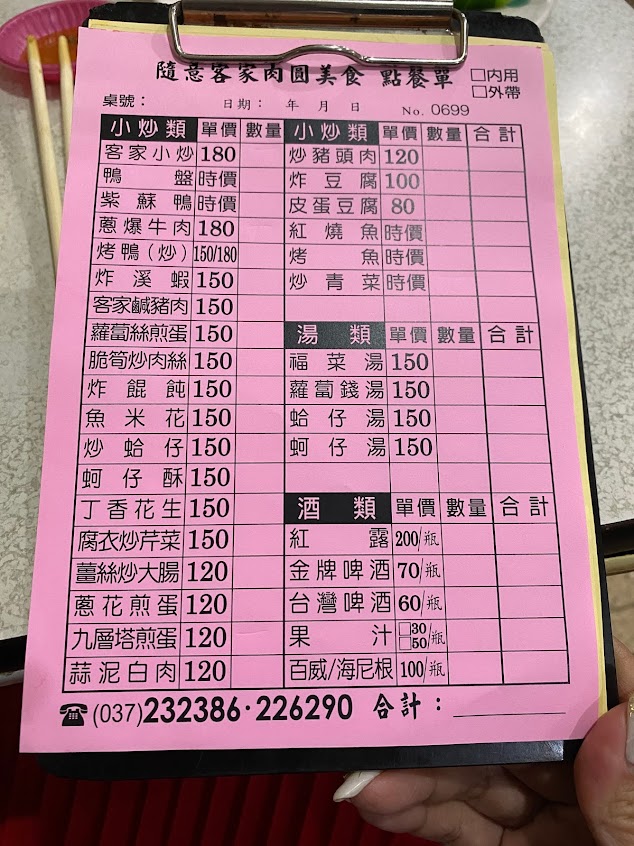 隨意客家肉圓美食 點餐單 □內用
□外帶
桌號： 日期： 年 月 日 No. 0699
小炒類 單價 數量
客家小炒 180
鴨盤 時價
紫蘇鴨 時價
蔥爆牛肉 180
烤鴨(炒) 150/180
炸溪蝦 150
客家鹹豬肉 150
蘿蔔絲煎蛋 150
脆筍炒肉絲 150
炸餛飩 150
魚米花 150
炒蛤仔 150
蚵仔酥 150
丁香花生 150
腐衣炒芹菜 150
薑絲炒大腸 120
蔥花煎蛋 120
九層塔煎蛋 120
蒜泥白肉 120
小炒類 單價 數量 合計
炒豬頭肉 120
炸豆腐 100
皮蛋豆腐 80
紅燒魚 時價
烤魚 時價
炒青菜 時價
湯類 單價 數量 合計
福菜湯 150
蘿蔔錢湯 150
蛤仔湯 150
蚵仔湯 150
酒類 單價 數量 合計
紅露 200/瓶
金牌啤酒 70/瓶
台灣啤酒 60/瓶
果汁 □30 □50/瓶
百威/海尼根 100/瓶
☎(037)232386·226290 合計：